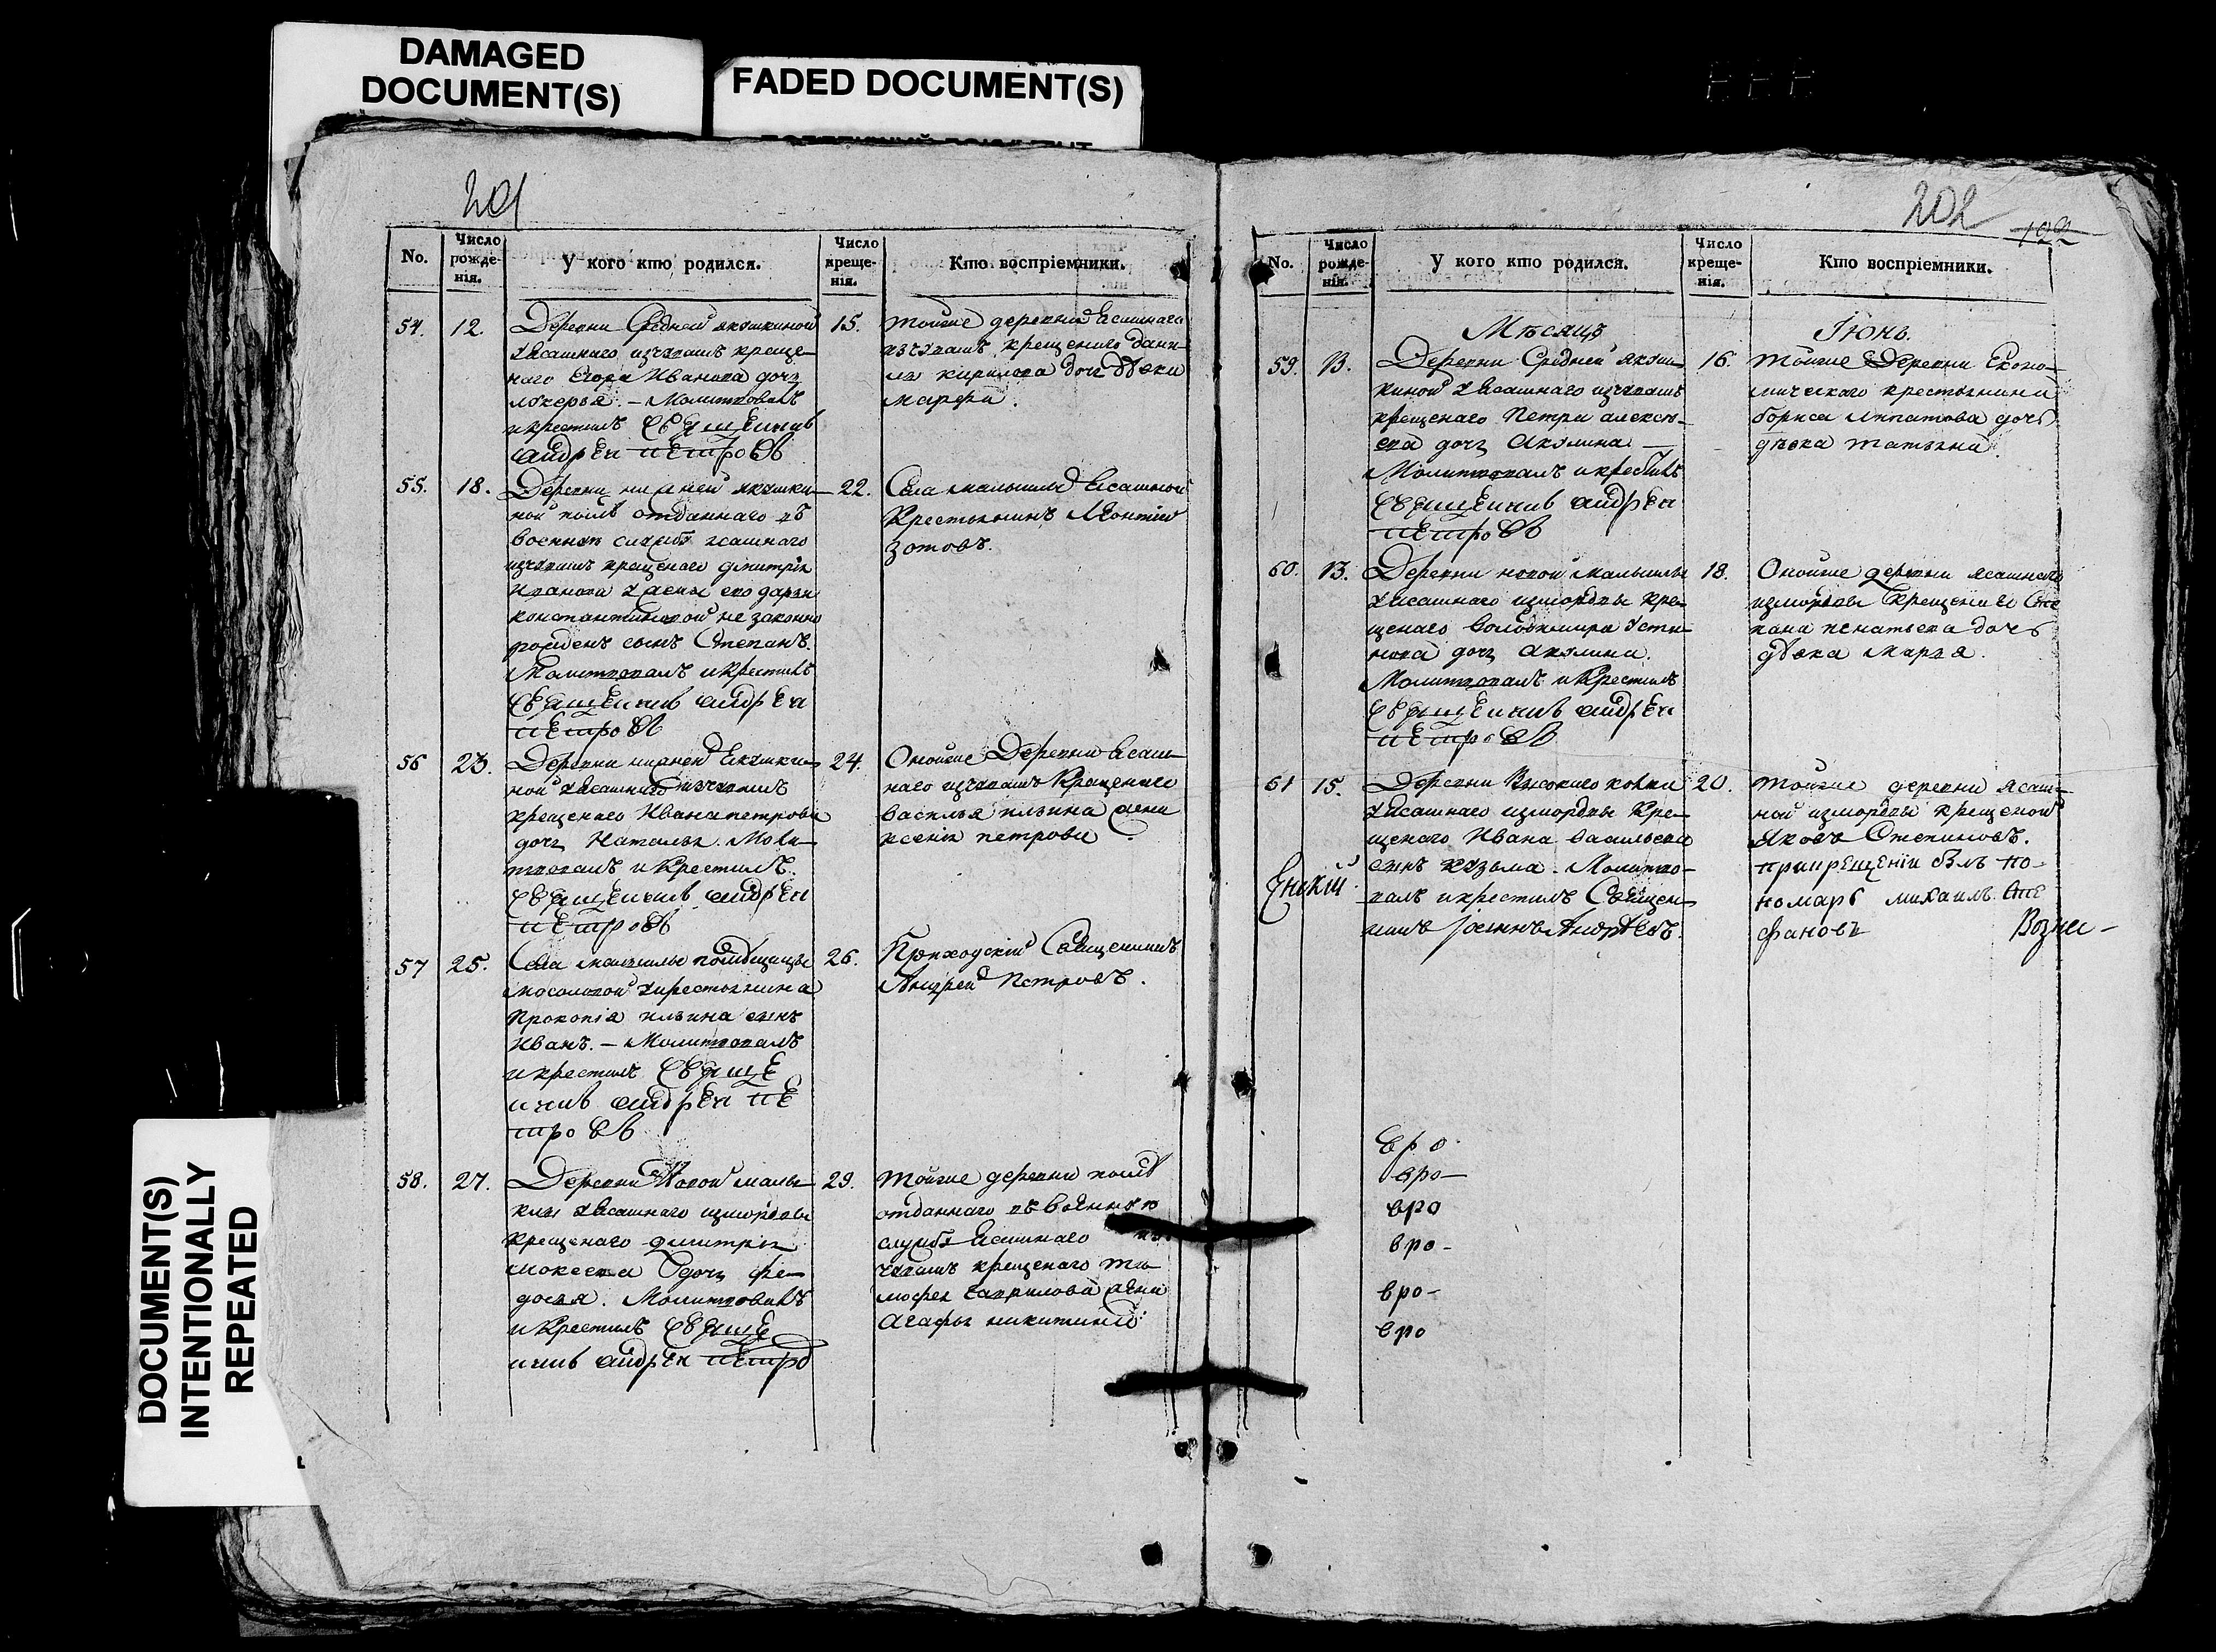 DAMAGED
DOCUMENT(S)
FADED DOCUMENT(S)
DOCUMENT(S)
INTENTIONALLY
REPEATED
201
No.
Число рожде-нія.
У кого кто родился.
Число креще-нія.
Кто воспріемники.
54. 12.
Деревни Средней якушкиной
у Ясашнаго изчувашъ креще-
наго Егора Иванова дочь
лукерья. – Молитвовалъ
и крестилъ Священникъ
андрей петровъ
15.
тойже деревни Ясашнаго
изчувашъ крещенаго Дани-
ла кирилова дочь Дѣвка
марфа.
55. 18.
Деревни нижней якушки-
ной послѣ отданнаго въ
военную службу ясашнаго
изчувашъ крещенаго димитрія
Иванова у жены его дарьи
константиновой не законно
рожденъ сынъ Степанъ.
Молитвовалъ и крестилъ
Священникъ андрей
петровъ
22.
Села малыклы Ясашной
Крестьянинъ Леонтій
Зотовъ.
56 23.
Деревни нижней Якушки-
ной у Ясашнаго изчувашъ
крещенаго Ивана петрова
дочь Наталья. Моли-
твовалъ и Крестилъ.
Священникъ андрей
петровъ
24.
Онойже Деревни Ясаш-
наго изчувашъ Крещенаго
Василья ильина жена
ксенія петрова
57 25.
Села малыклы помѣщицы
мосоловой у крестьянина
Прокопія ильина сынъ
Иванъ. – Молитвовалъ
и крестилъ Священникъ
андрей пе
тровъ
26.
Приходскій Священникъ
Андрей Петровъ.
58. 27.
Деревни Новой малы-
клы у Ясашнаго измордвы
Крещенаго димитрія
мокеева дочь фе-
досья. Молитвовалъ
и Крестилъ Священникъ
андрей петро
29.
тойже деревни послѣ
отданнаго въ военную
службу Ясашнаго из
чувашъ крещенаго ти-
мофея гаврилова жена
Агафья никитина
202
No.
Число рожде-нія.
У кого кто родился.
Число креще-нія.
Кто воспріемники.
Мѣсяцъ Іюнь.
59. 13.
Деревни Средней якуш-
киной у Ясашнаго изчувашъ
крещенаго Петра алексѣ-
ева дочь Акулина –
Молитвовалъ и крестилъ
Священникъ андрей
петровъ
16.
тойже Деревни Еконо-
мическаго крестьянина
бориса ипатова дочь
дѣвка татьяна.
60. 13.
Деревни новой малыклы
у Ясашнаго измордвы Кре-
щенаго Володимира Усти-
нова дочь Акулина.
Молитвовалъ и Крестилъ
Священникъ андрей
петровъ
18.
Онойже деревни ясашнаго
измордвы Крещенаго Сте
пана игнатьева дочь
дѣвка марья.
61 15.
Деревни Высокаго колка
у Ясашнаго измордвы Кре-
щенаго Ивана Васильева
сынъ козьма. Молитво-
валъ и крестилъ Священ-
никъ Іоаннъ Андрѣевъ.
20.
тойже деревни Ясаш-
ной измордвы крещеной
Яковъ Степановъ.
При крещеніи былъ по-
номарь михаилъ Сте
фановъ Вознес-
енскій
вро
вро –
вро
вро –
вро –
вро